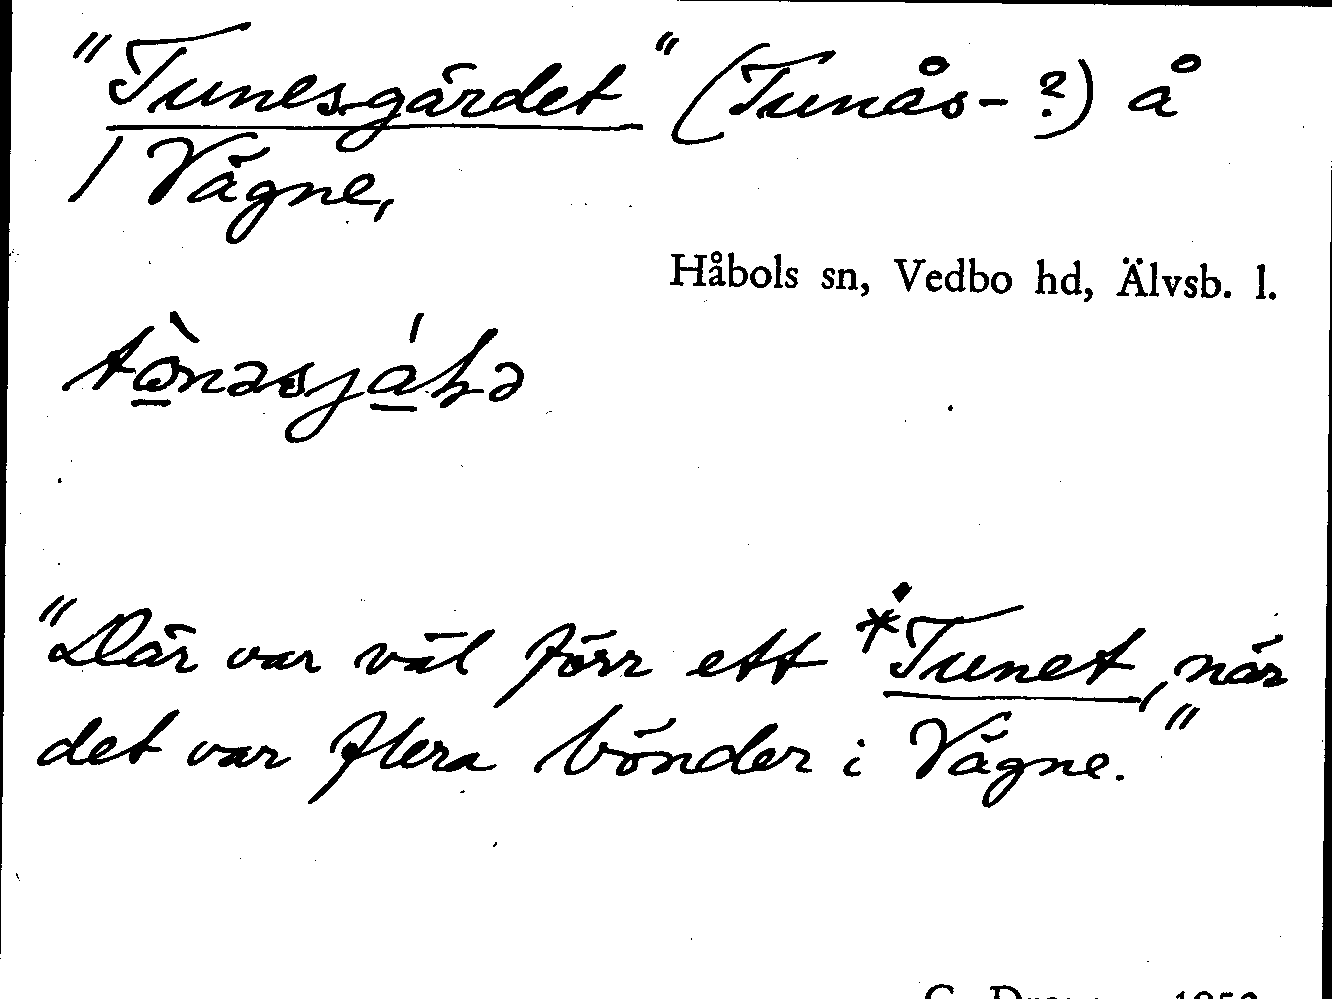 "Tunesgärdet" (Tunås- ?) å
/ Vägne,
Håbols sn, Vedbo hd, Älvsb. l.
"Där var väl förr ett *Tunet, när
det var flera bönder i Vägne."